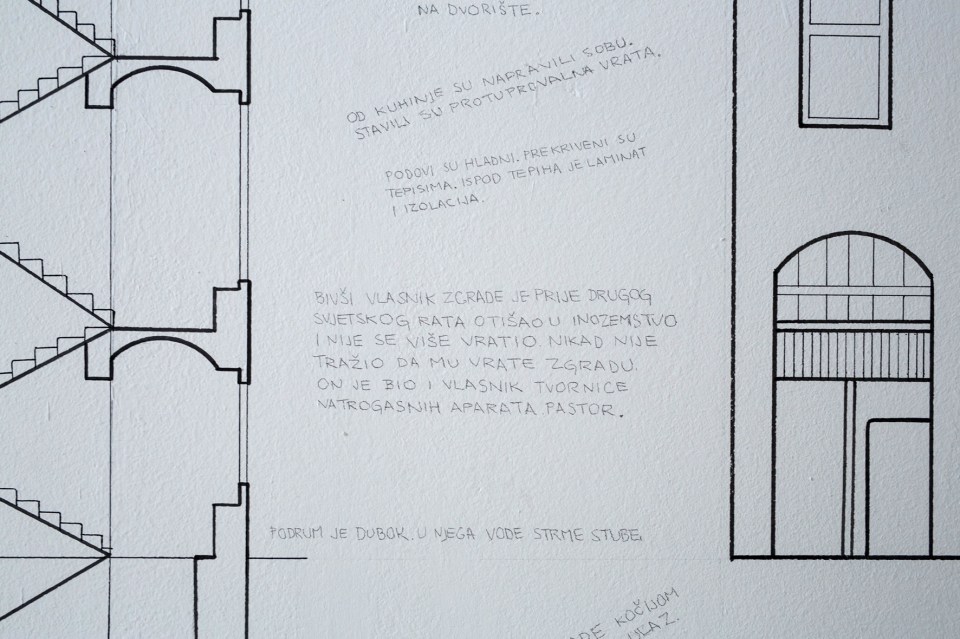 NA DVORIŠTE.
OD KUHINJE SU NAPRAVILI SOBU.
STAVILI SU PROTUPROVALNA VRATA.
PODOVI SU HLADNI. PREKRIVENI SU
TEPISIMA. ISPOD TEPIHA JE LAMINAT
I IZOLACIJA.
BIVŠI VLASNIK ZGRADE JE PRIJE DRUGOG
SVJETSKOG RATA OTIŠAO U INOZEMSTVO
I NIJE SE VIŠE VRATIO. NIKAD NIJE
TRAŽIO DA MU VRATE ZGRADU.
ON JE BIO I VLASNIK TVORNICE
VATROGASNIH APARATA PASTOR.
PODRUM JE DUBOK. U NJEGA VODE STRME STUBE.
KOČIJOM